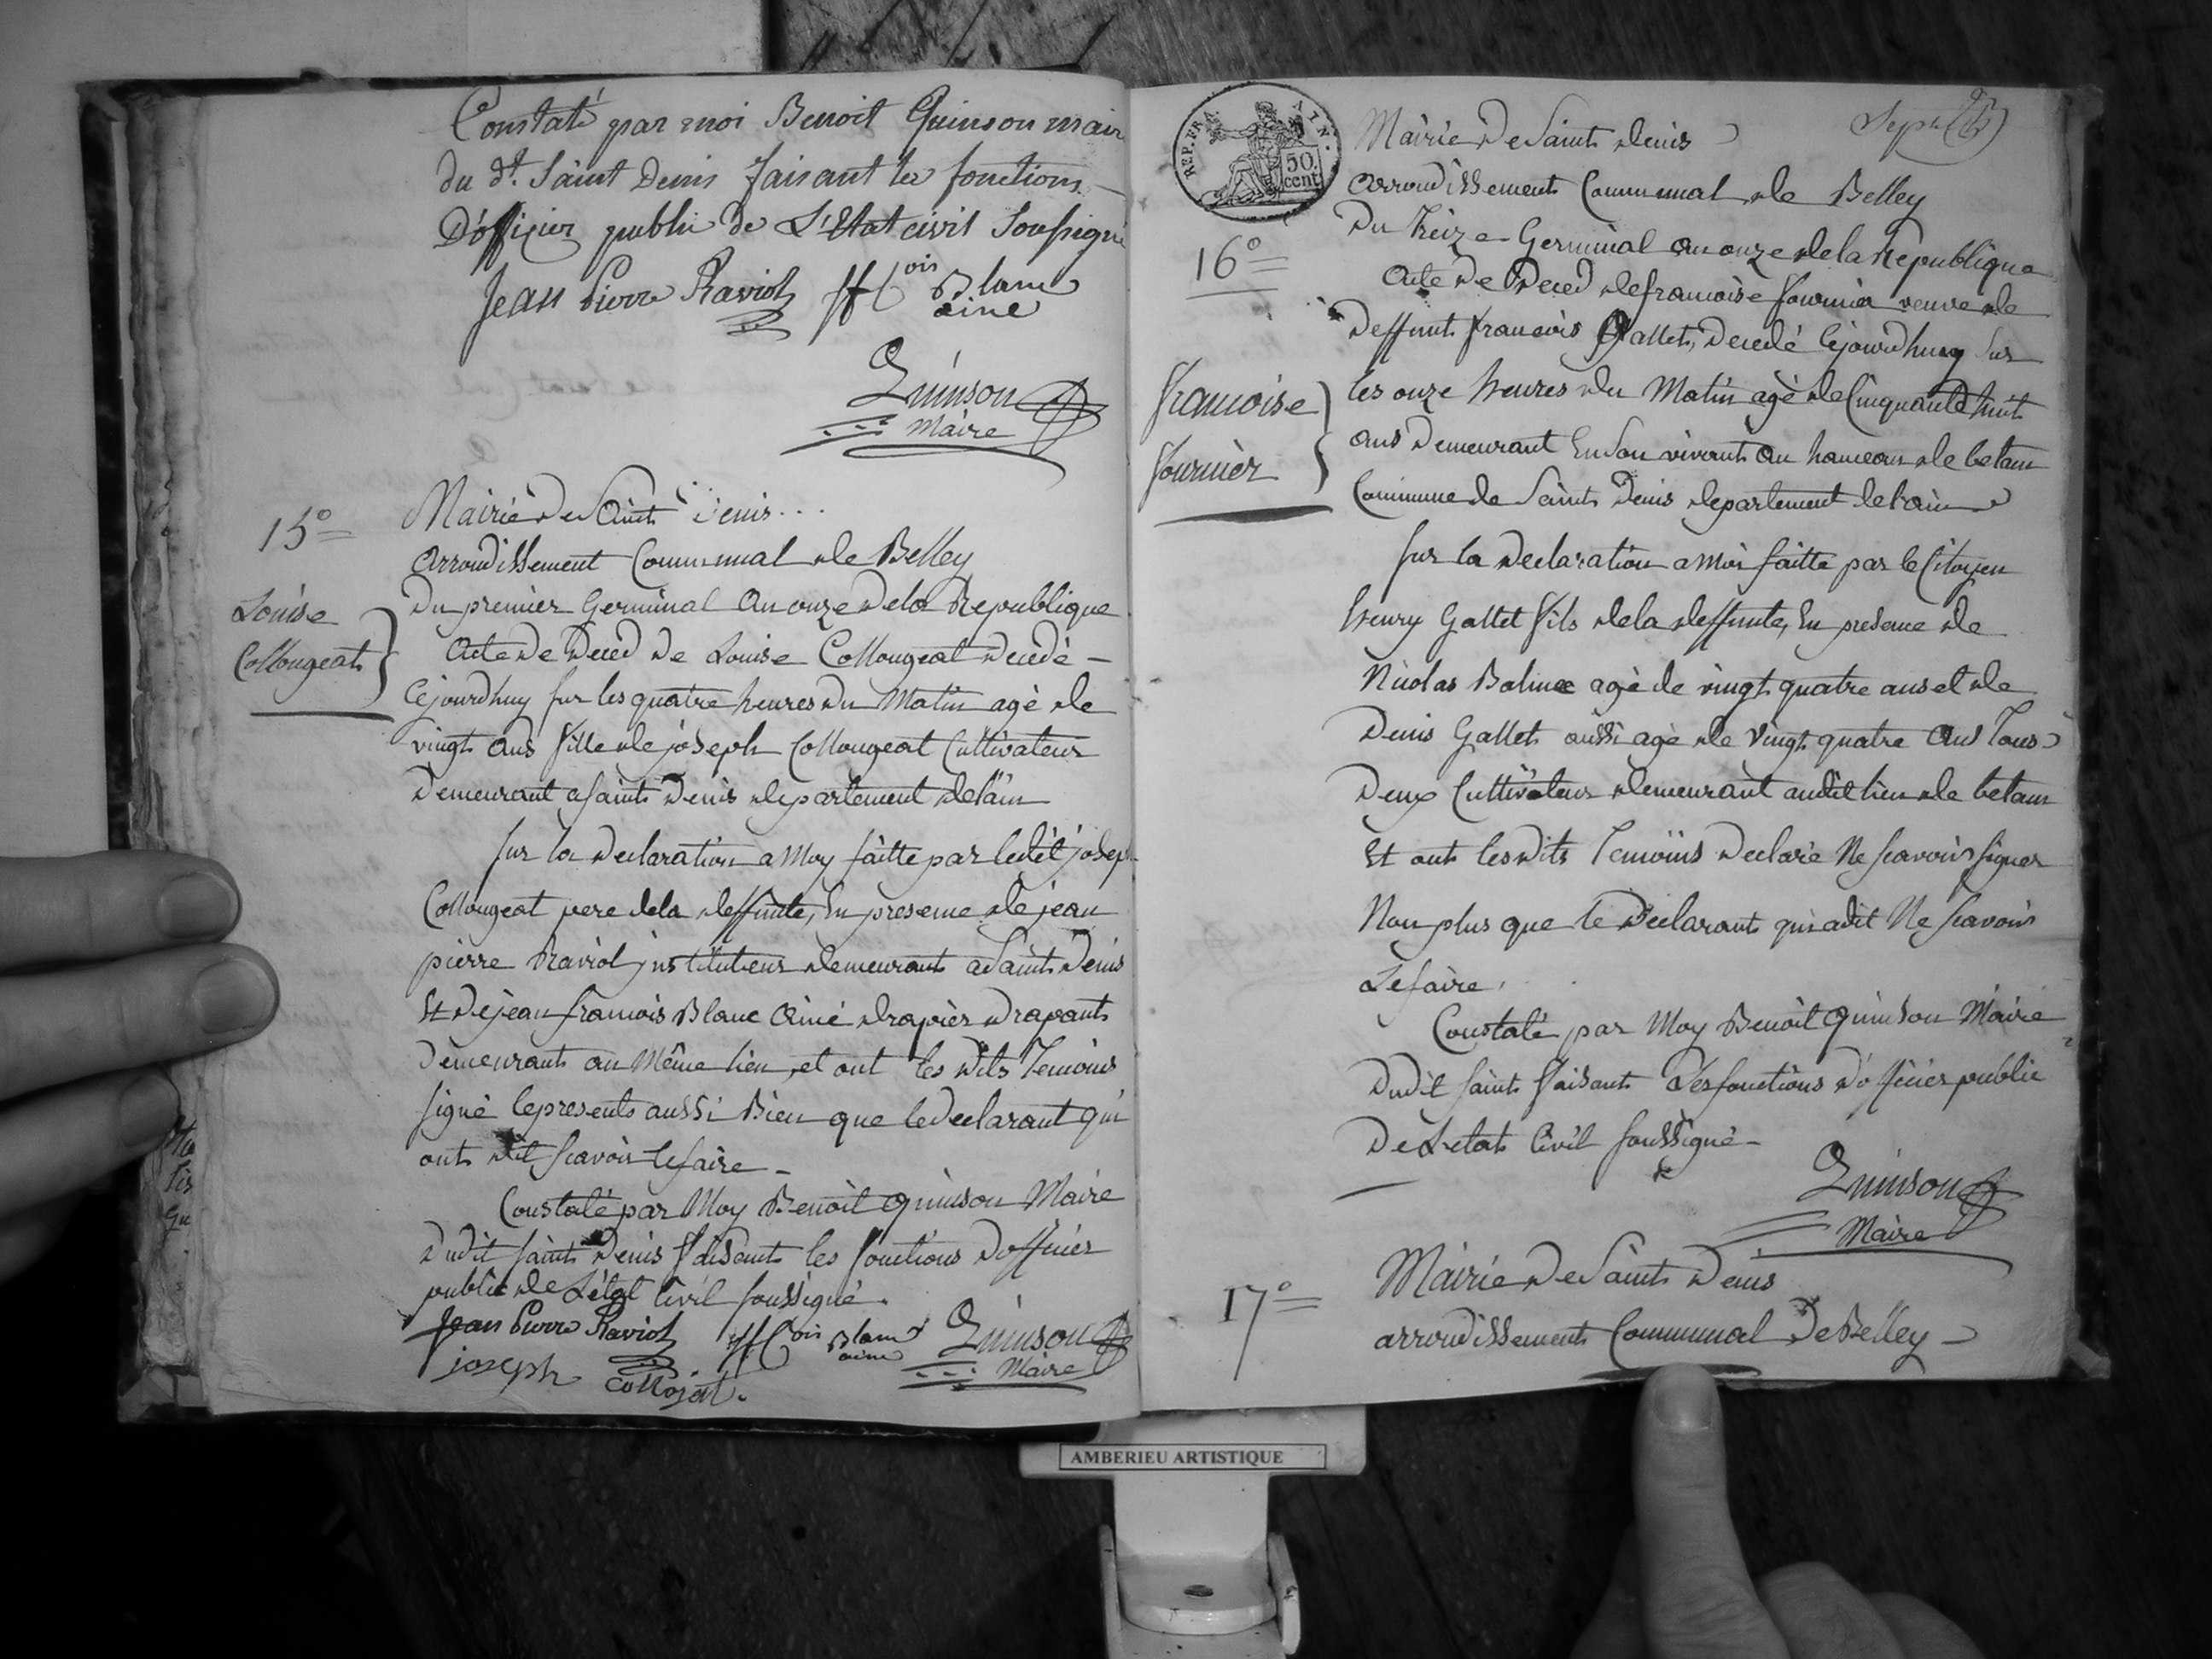 Constaté par moi Benoit Quinson mair
du dt. Saint Denis faisant les fonctions
D'offizier public de L'Etat civil Soussigné
Jean Pierre Raviol jf Cois Blanc
ainé
Quinson
Maire
15°
Louise
Collougeat
Mairie De Saint Denis...
arrondissement Communal de Belley
Du premier Germinal an onze Dela Republique
Acte De Deced De Louise Collougeat Decedé
Cejourdhuy sur les quatre heures Du Matin agé de
vingt ans fille de joseph Collougeat Cultivateur
Demeurant a saint Denis departement delain
sur la Declaration a Moy faitte par ledit joseph
Collougeat pere dela deffunte, En presence de jean
pierre Raviol jnstituteur demeurant a Saint Denis
Et De jean francois Blanc Ainé drapier drapant
Demeurant au Même lieu, et ont les dits Temoins
signé le present aussi Bien que le Declarant qui
ont dit scavoir le faire
Constaté par Moy Benoit Quinson Maire
Dudit saint Denis faisant les fonctions D'officier
public de L'état Civil soussigné.
Jean Pierre Raviol jf Cois Blanc
ainé
Quinson
Maire
joseph collojat.
REP. FRA. AIN.
50
cent.
16°
francoise
fournier
Mairie De Saint denis
arrondissement Communal de Belley
Du treize Germinal an onze dela Republique
Acte De Deced de francoise fournier veuve de
Deffunt francois Gallet, Decedé Cejourdhuy sur
les onze heures du Matin agé de Cinquante huit
ans Demeurant En son vivant au hameau de betan
Commune de Saint Denis departement de lain
sur la Declaration a Moi faitte par le Citoyen
henry Gallet fils dela deffunte, En presence de
Nicolas agé de vingt quatre ans et de
Denis Gallet aussi agé de Vingt quatre ans Tous
Deux Cultivateur demeurant audit lieu de betan
Et ont les dits Temoins Declaré Ne scavoir signer
Non plus que le Declarant qui a dit Ne scavoir
Le faire.
Constaté par Moy Benoit Quinson Maire
Dudit saint faisant Des fonctions D'officier public
De L'etat Civil soussigné
Quinson
Maire
17°
Mairie De Saint Denis
arrondissement Communal De Belley
AMBERIEU ARTISTIQUE